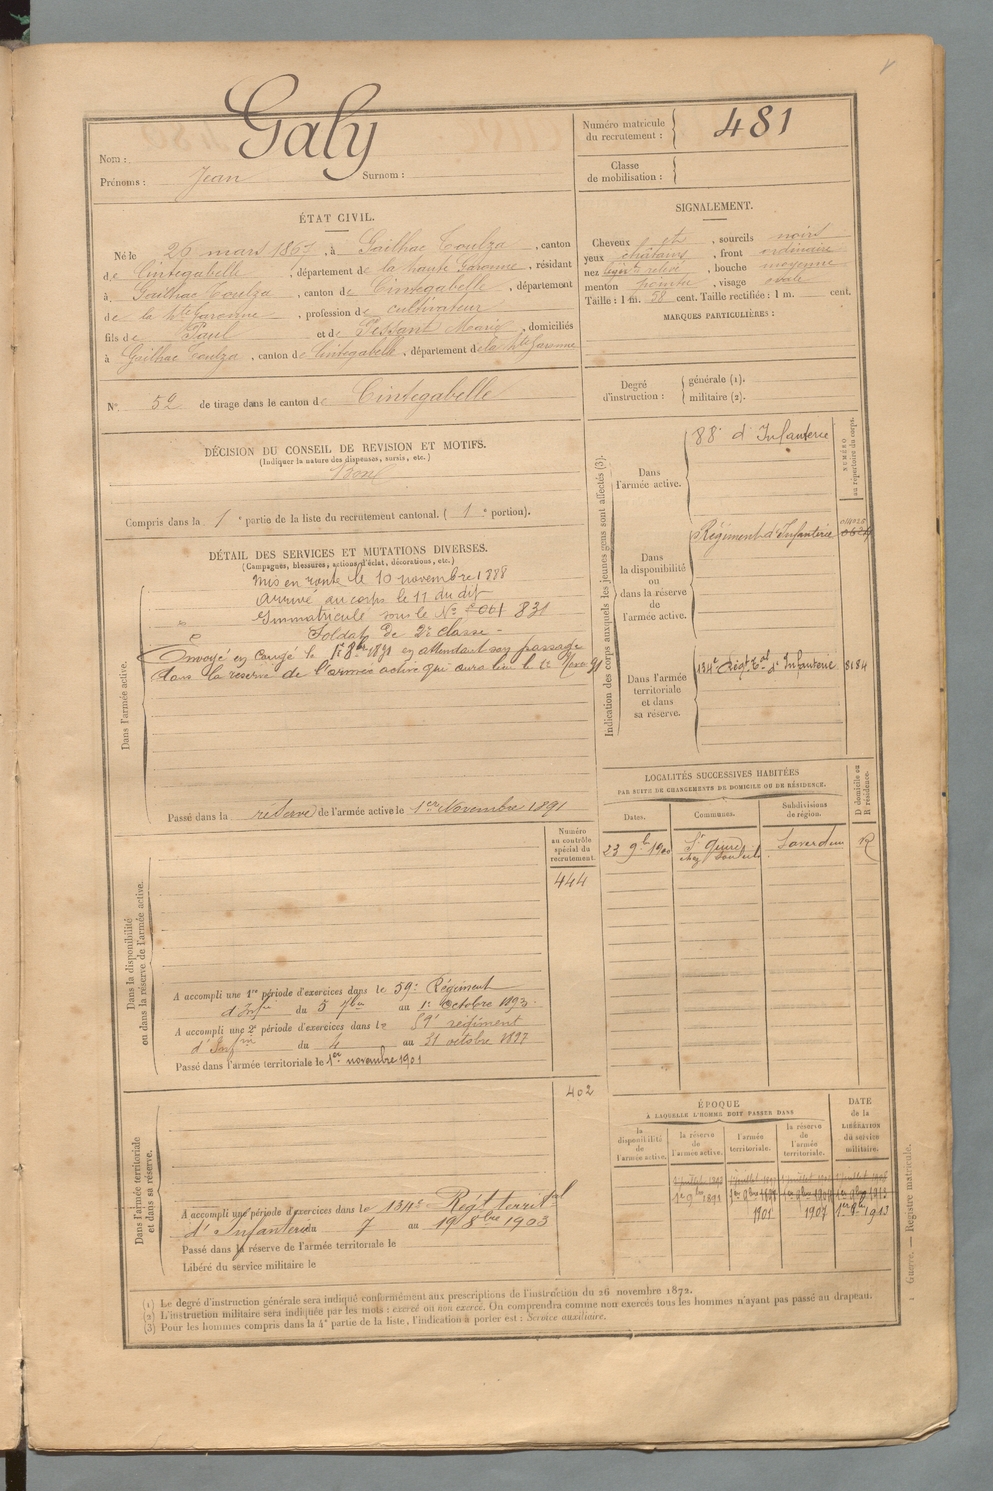 Nom : Galy
Prénoms : Jean Surnom :
Numéro matricule du recrutement : 481
Classe de mobilisation :
ÉTAT CIVIL.
Né le 26 mars 1867, à Gailhac Toulza, canton
de Cintegabelle, département de la haute Garonne, résidant
à Gailhac Toulza, canton de Cintegabelle, département
de la hte Garonne, profession de cultivateur
fils de Paul et de Pessant Marie, domiciliés
à Gailhac Toulza, canton de Cintegabelle, département de la hte Garonne
N° 52 de tirage dans le canton de Cintegabelle
SIGNALEMENT.
Cheveux et, sourcils noirs
yeux châtains, front ordinaire
nez relevé, bouche moyenne
menton, visage ovale
Taille : 1 m. 58 cent. Taille rectifiée : 1 m. cent.
MARQUES PARTICULIÈRES :
Degré d'instruction : générale (1).
militaire (2).
DÉCISION DU CONSEIL DE REVISION ET MOTIFS.
(Indiquer la nature des dispenses, sursis, etc.)
Bon
Compris dans la 1e partie de la liste du recrutement cantonal. ( 1e portion).
DÉTAIL DES SERVICES ET MUTATIONS DIVERSES.
(Campagnes, blessures, actions d'éclat, décorations, etc.)
Dans l'armée active.
Mis en route le 10 novembre 1888
Arrivé au corps le 11 du dit
Immatriculé sous le N° 831
Soldat de 2e classe
Envoyé en congé le 1891 en attendant son passage
dans la réserve de l'armée active qui aura lieu le 1er Nove 91
Passé dans la réserve de l'armée active le 1er Novembre 1891
Indication des corps auxquels les jeunes gens sont affectés (3).
NUMÉRO au répertoire du corps.
Dans l'armée active. 88e d'Infanterie
Dans la disponibilité ou dans la réserve de l'armée active. Régiment d'Infanterie
Dans l'armée territoriale et dans sa réserve. 134e Régt Tal d'Infanterie 8184
LOCALITÉS SUCCESSIVES HABITÉES
PAR SUITE DE CHANGEMENTS DE DOMICILE OU DE RÉSIDENCE.
Dates. Communes. Subdivisions de région. D domicile ou R résidence.
23 9b 1900 St Quirc chez Saverdun R
Dans la disponibilité ou dans la réserve de l'armée active.
Numéro au contrôle spécial du recrutement.
444
A accompli une 1re période d'exercices dans le 59e Régiment
d'Infie du 5 7bre au 1er Octobre 1893.
A accompli une 2e période d'exercices dans le 59e régiment
d'Infie du 4 au 31 octobre 1897
Passé dans l'armée territoriale le 1er novembre 1901
Dans l'armée territoriale et dans sa réserve.
402
A accompli une période d'exercices dans le 134e Régt territal
d'Infanterie du 7 au 19 8bre 1903
Passé dans la réserve de l'armée territoriale le
Libéré du service militaire le
ÉPOQUE
À LAQUELLE L'HOMME DOIT PASSER DANS
la disponibilité de l'armée active. la réserve de l'armée active. l'armée territoriale. la réserve de l'armée territoriale. DATE de la LIBÉRATION du service militaire.
1er 9bre 1891 1913
1901 1907 1913
(1) Le degré d'instruction générale sera indiqué conformément aux prescriptions de l'instruction du 26 novembre 1872.
(2) L'instruction militaire sera indiquée par les mots : exercé ou non exercé. On comprendra comme non exercés tous les hommes n'ayant pas passé au drapeau.
(3) Pour les hommes compris dans la 4e partie de la liste, l'indication à porter est : Service auxiliaire.
Guerre. — Registre matricule.